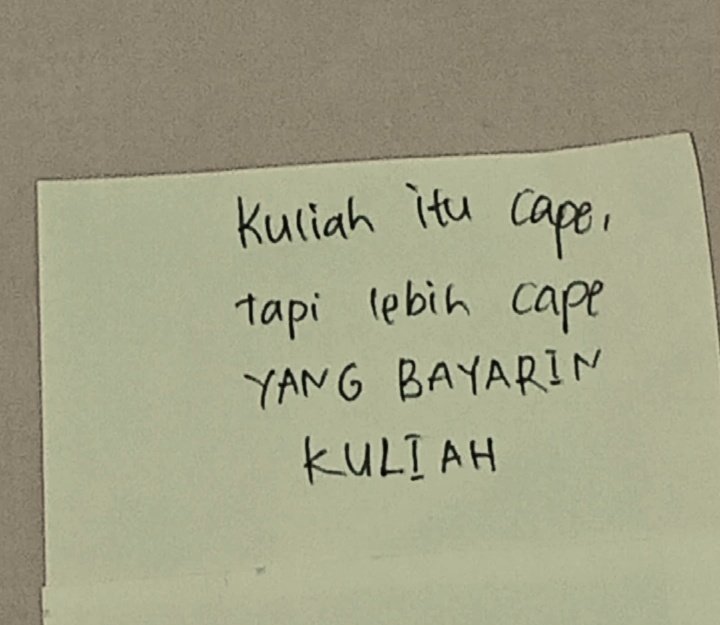 Kuliah itu cape,
tapi lebih cape
YANG BAYARIN
KULIAH